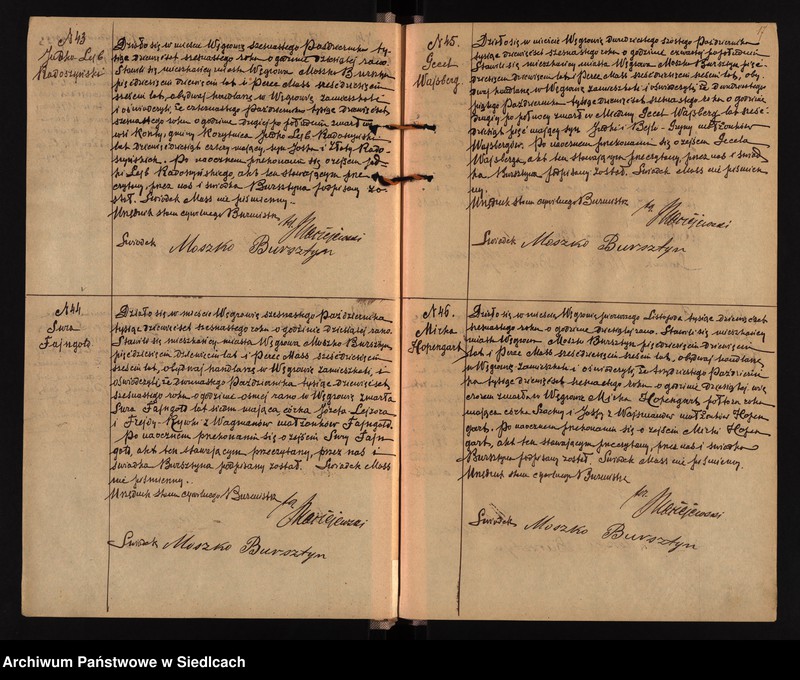 N 43
Judko Lejb
Radoszyński
Działo się w mieście Węgrowie szesnastego Października ty-
siąc dziewięćset szesnastego roku o godzinie dziesiątej rano.
Stawili się mieszkańcy miasta Węgrowa Moszko Bursztyn
pięćdziesiąt dziewięć lat i Perec Mass sześćdziesiąt
sześć lat, obydwaj handlarze w Węgrowie zamieszkali
i oświadczyli, że czternastego Października tysiąc dziewięćset
szesnastego roku o godzinie drugiej po południu zmarł
wsi gminy Korytnica Judko Lejb Radoszyński
lat dziewięćdziesiąt cztery mający, syn Joska i Złoty Rado-
szyńskich. Po naocznem przekonaniu się o zejściu Jud-
ki Lejb Radoszyńskiego, akt ten stawającym prze-
czytany, przez nas i świadka Bursztyna podpisany zo-
stał. Świadek Mass nie piśmienny.
Urzędnik stanu cywilnego Burmistrz
Maciejewski
Świadek Moszko Bursztyn
N 44
Sura
Fajngold
Działo się w mieście Węgrowie szesnastego Października
tysiąc dziewięćset szesnastego roku o godzinie dziesiątej rano.
Stawili się mieszkańcy miasta Węgrowa Moszko Bursztyn
pięćdziesiąt dziewięć lat i Perec Mass sześćdziesiąt
sześć lat, obydwaj handlarze w Węgrowie zamieszkali, i
oświadczyli, że Października tysiąc dziewięćset
szesnastego roku o godzinie ósmej rano w Węgrowie zmarła
Sura Fajngold lat siedm mająca, córka Józefa Lejzora
i Frejdy Rywki z Wagmanów małżonków Fajngold.
Po naocznem przekonaniu się o zejściu Sury Fajn-
gold, akt ten stawającym przeczytany, przez nas i
świadka Bursztyna podpisany został. Świadek Mass
nie piśmienny.
Urzędnik stanu cywilnego Burmistrz
Maciejewski
Świadek Moszko Bursztyn
17
N 45.
Gecel
Wajsberg
Działo się w mieście Węgrowie dwudziestego szóstego Października
tysiąc dziewięćset szesnastego roku o godzinie czwartej popołudniu.
Stawili się mieszkańcy miasta Węgrowa Moszko Bursztyn pięć-
dziesiąt dziewięć lat i Perec Mass sześćdziesiąt sześć lat, oby-
dwaj handlarze w Węgrowie zamieszkali i oświadczyli, że dwudziestego
piątego Października tysiąc dziewięćset szesnastego roku o godzinie
drugiej po północy zmarł w Gecel Wajsberg lat sześć-
dziesiąt pięć mający syn Judki i Bejli-Gujny małżonków
Wajsbergów. Po naocznem przekonaniu się o zejściu Gecela
Wajsberga, akt ten stawającym przeczytany, przez nas i świad-
ka Bursztyna podpisany został. Świadek Mass nie piśmien-
ny.
Urzędnik stanu cywilnego Burmistrz
Maciejewski
Świadek Moszko Bursztyn
N 46.
Mirka
Hopengart
Działo się w mieście Węgrowie pierwszego Listopada tysiąc dziewięćset
szesnastego roku o godzinie dziesiątej rano. Stawili się mieszkańcy
miasta Węgrowa Moszko Bursztyn pięćdziesiąt dziewięć
lat i Perec Mass sześćdziesiąt sześć lat, obydwaj handlarze
w Węgrowie zamieszkali i oświadczyli, że trzydziestego Paździer-
nika tysiąc dziewięćset szesnastego roku o godzinie dziesiątej wie-
czorem zmarła w Węgrowie Mirka Hopengart półtora roku
mająca córka i z Wajsmanów małżonków Hopen-
gart. Po naocznem przekonaniu się o zejściu Mirki Hopen-
gart, akt ten stawającym przeczytany, przez nas i świadka
Bursztyna podpisany został. Świadek Mass nie piśmienny.
Urzędnik stanu cywilnego Burmistrz
Maciejewski
Świadek Moszko Bursztyn
Archiwum Państwowe w Siedlcach